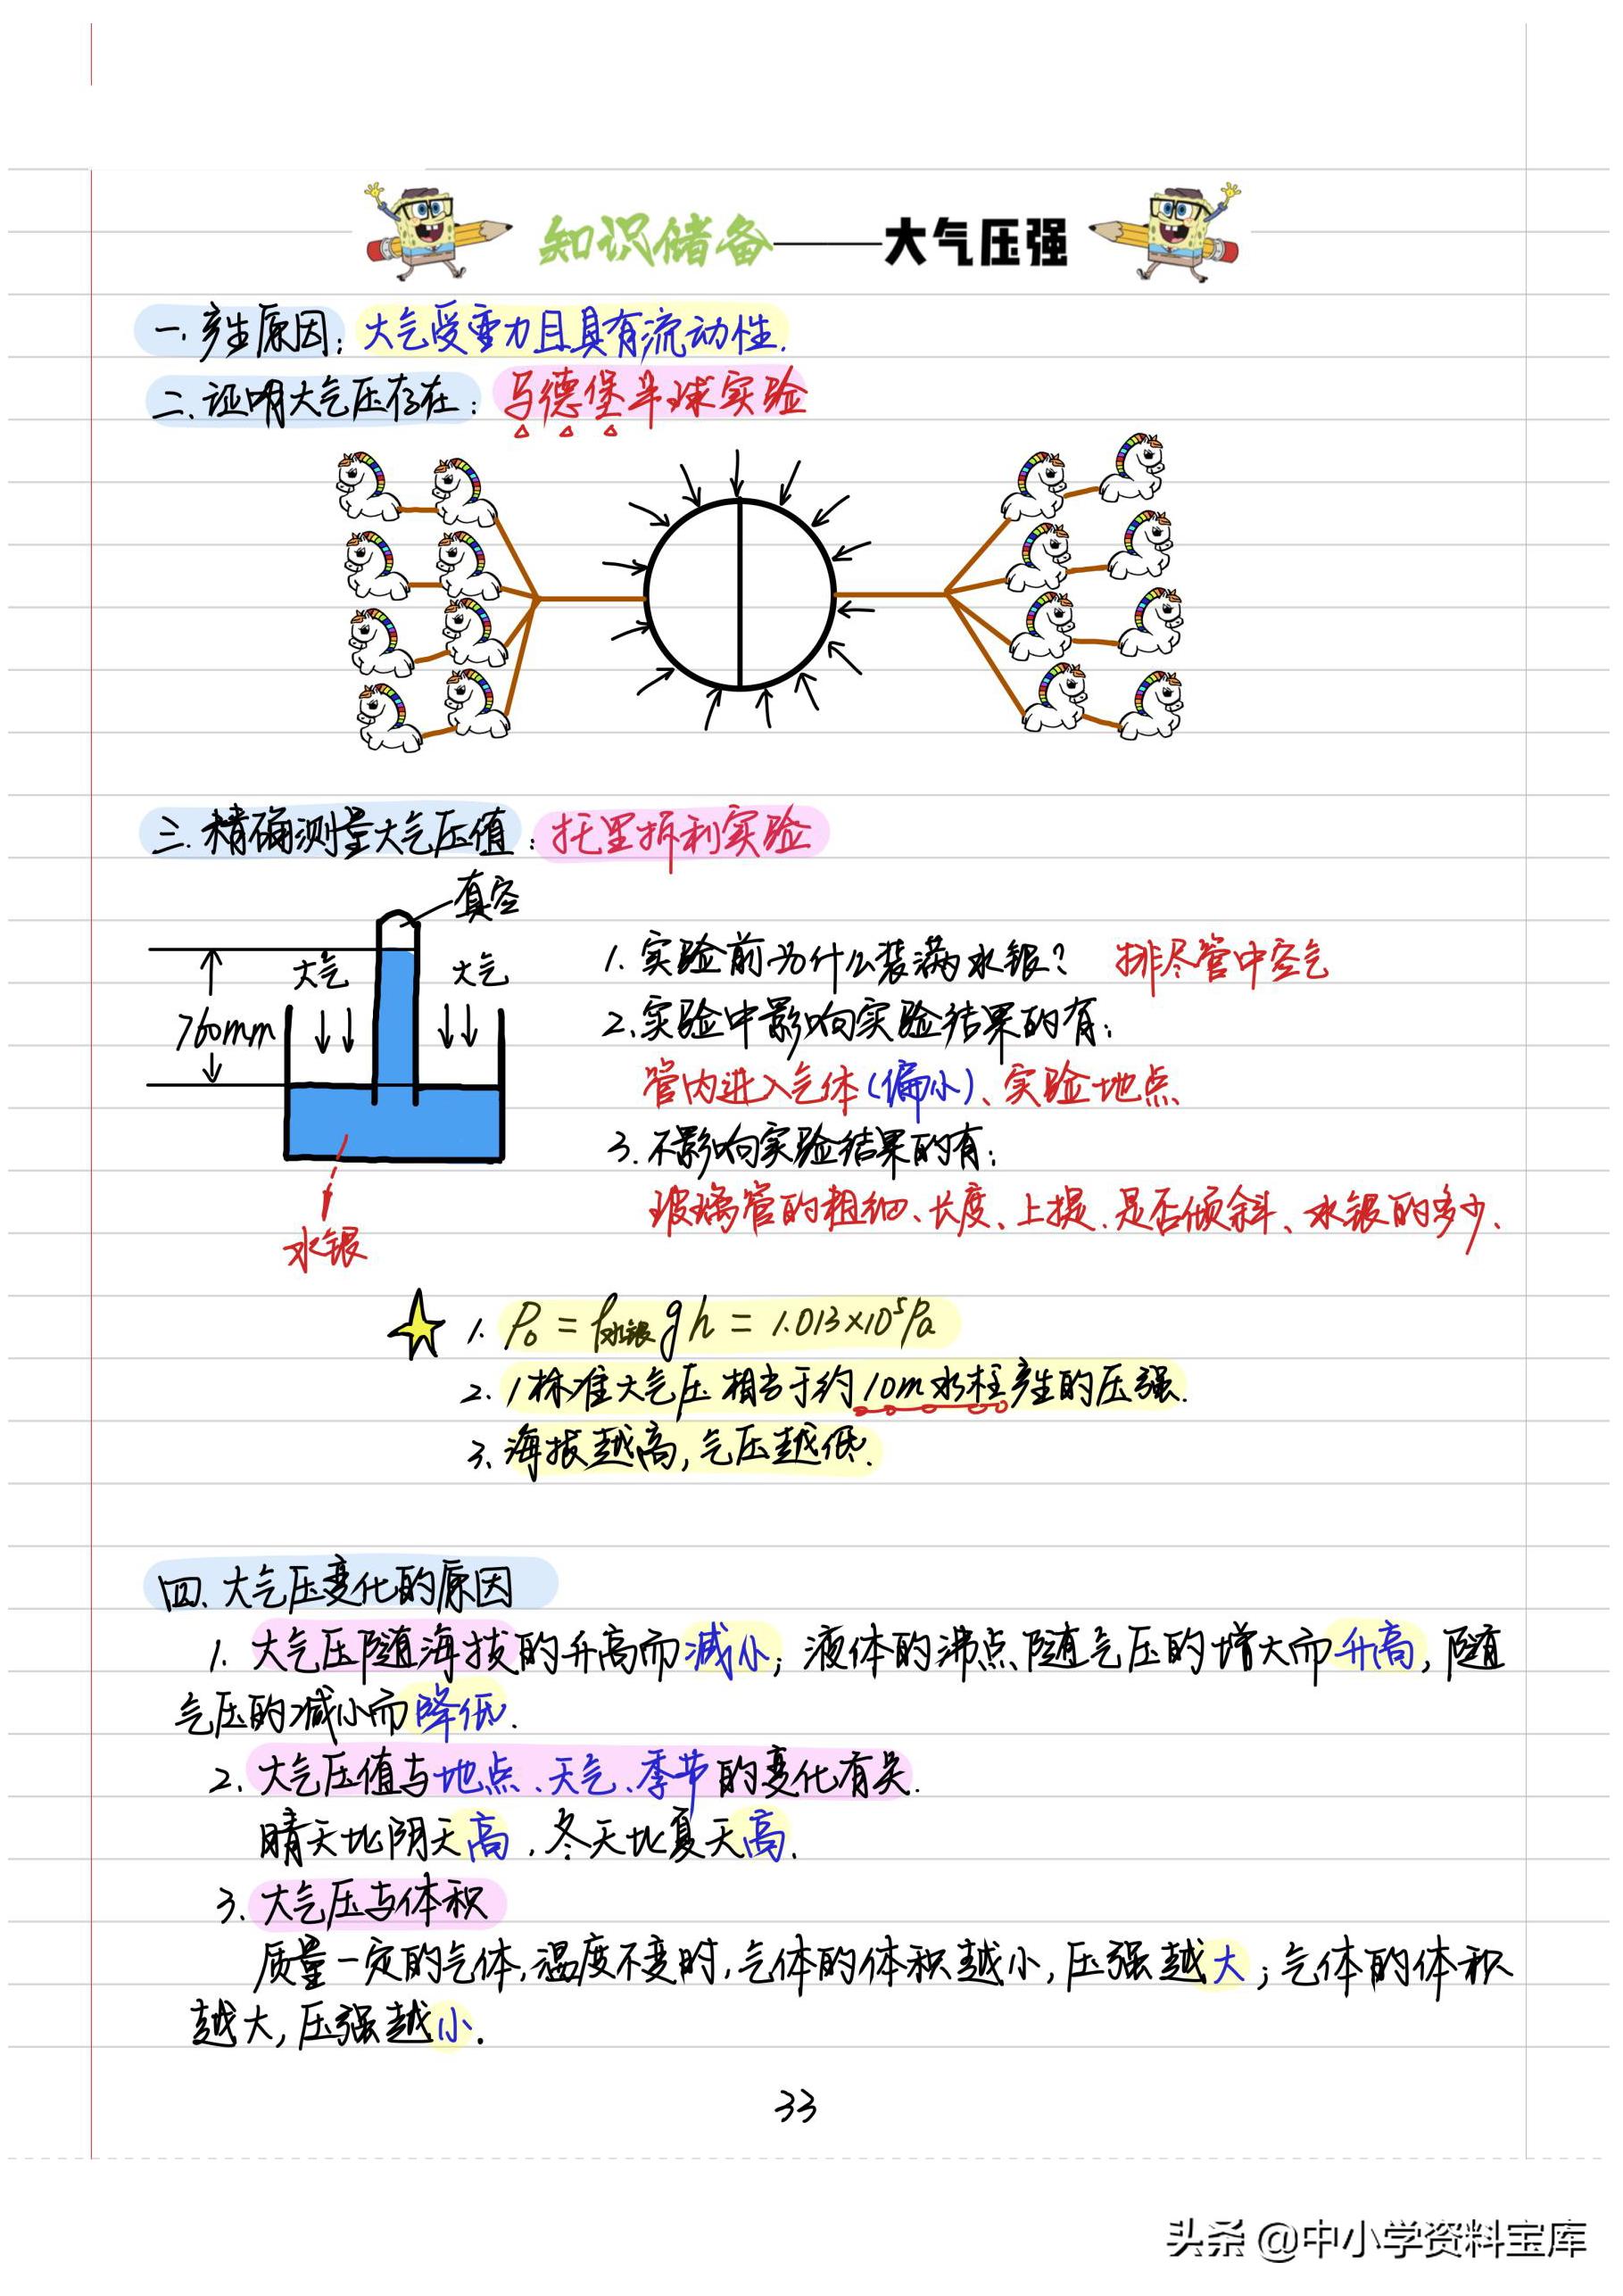 知识储备——大气压强
一.产生原因：大气受重力且具有流动性.
二.证明大气压存在：马德堡半球实验
三.精确测量大气压值：托里拆利实验
真空
大气 大气
760mm
水银
1.实验前为什么装满水银？ 排尽管中空气
2.实验中影响实验结果的有：
管内进入气体(偏小)、实验地点
3.不影响实验结果的有：
玻璃管的粗细、长度、上提、是否倾斜、水银的多少、
1. P₀=ρ水银gh=1.013×10⁵Pa
2. 1标准大气压相当于约10m水柱产生的压强.
3.海拔越高,气压越低.
四、大气压变化的原因
1.大气压随海拔的升高而减小；液体的沸点随气压的增大而升高,随
气压的减小而降低.
2.大气压值与地点、天气、季节的变化有关.
晴天比阴天高.冬天比夏天高.
3.大气压与体积
质量一定的气体,温度不变时,气体的体积越小,压强越大；气体的体积
越大,压强越小.
33
头条 @中小学资料宝库